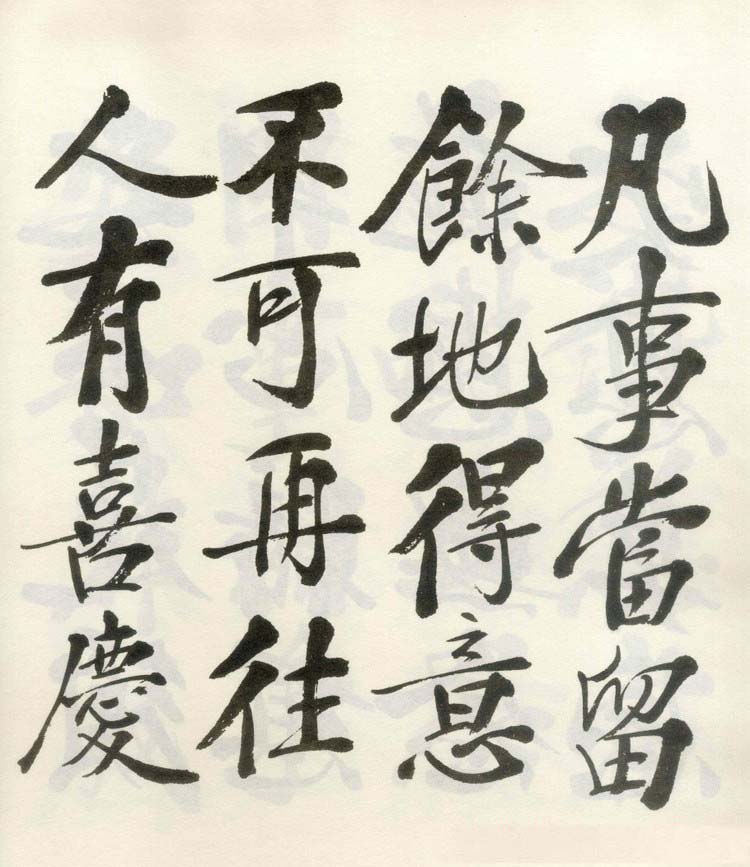 凡事當留
餘地得意
不可再往
人有喜慶